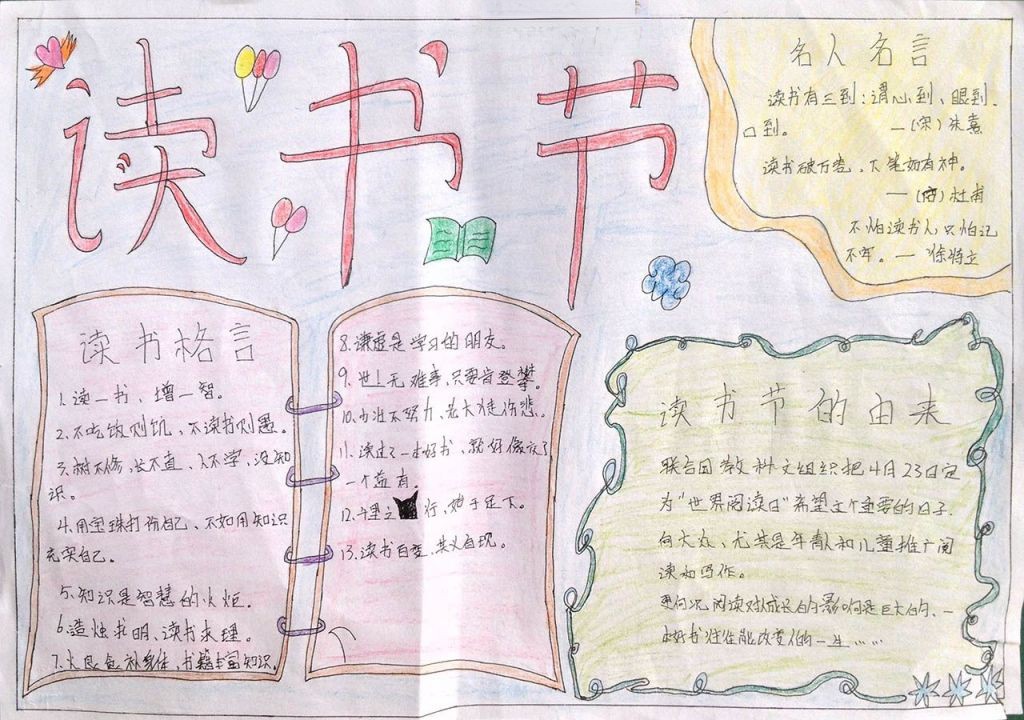 读书节
名人名言
读书有三到:谓心到、眼到、
口到。 —(宋)朱熹
读书破万卷、下笔如有神。
—(唐)杜甫
不怕读书人只怕记
不牢。— 徐特立
读书格言
1、读一书、增一智。
2、不吃饭则饥、不读书则愚。
3、树不修,长不直、人不学,没知
识。
4、用宝珠打扮自己、不如用知识
充实自己。
5、知识是智慧的火炬。
6、造烛求明、读书求理。
7、 补身体、书籍丰富知识。
8、谦虚是学习的朋友。
9、世上无难事、只要肯登攀。
10、少壮不努力、老大徒伤悲。
11、读过了一本好书、就好像交了
一个益友。
12、千里之 行、始于足下。
13、读书百变、其义自现。
读书节的由来
联合国教科文组织把4月23日定
为“世界阅读日”希望这个重要的日子.
向大众、尤其是年青人和儿童推广阅
读和写作。
更何况阅读对成长的影响是巨大的、一
本好书往往能改变人的一生……